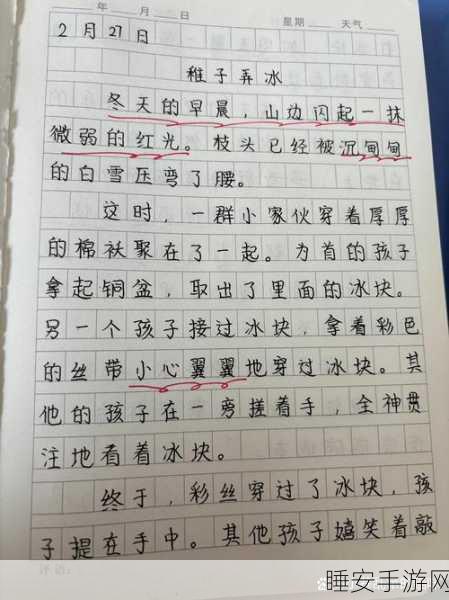 年 月 日 星期 天气
2月27日
稚子弄冰
冬天的早晨，山边闪起一抹
微弱的红光。枝头已经被沉甸甸
的白雪压弯了腰。
这时，一群小家伙穿着厚厚
的棉袄聚在了一起。为首的孩子
拿起铜盆，取出了里面的冰块。
另一个孩子接过冰块，拿着彩色
的丝带小心翼翼地穿过冰块。其
他的孩子在一旁搓着手，全神贯
注地看着冰块。
终于，彩丝穿过了冰块，孩
子提在手中。其他孩子嬉笑着敲
评语：
睡安手游网